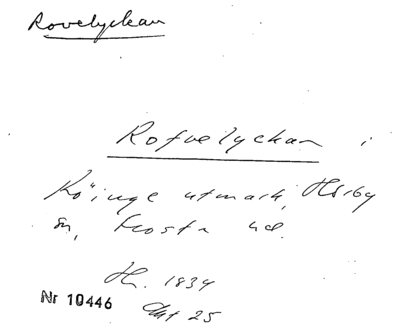 Rovelyckan
Rofvelyckan i
Köinge utmark, Hörby
sn, Frosta hd.
H. 1834
Nr 10446
Akt 25